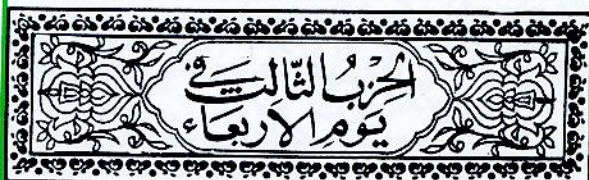 الحِزْبُ الثَّالِثُ في
يَوْمِ الأَرْبِعَاء